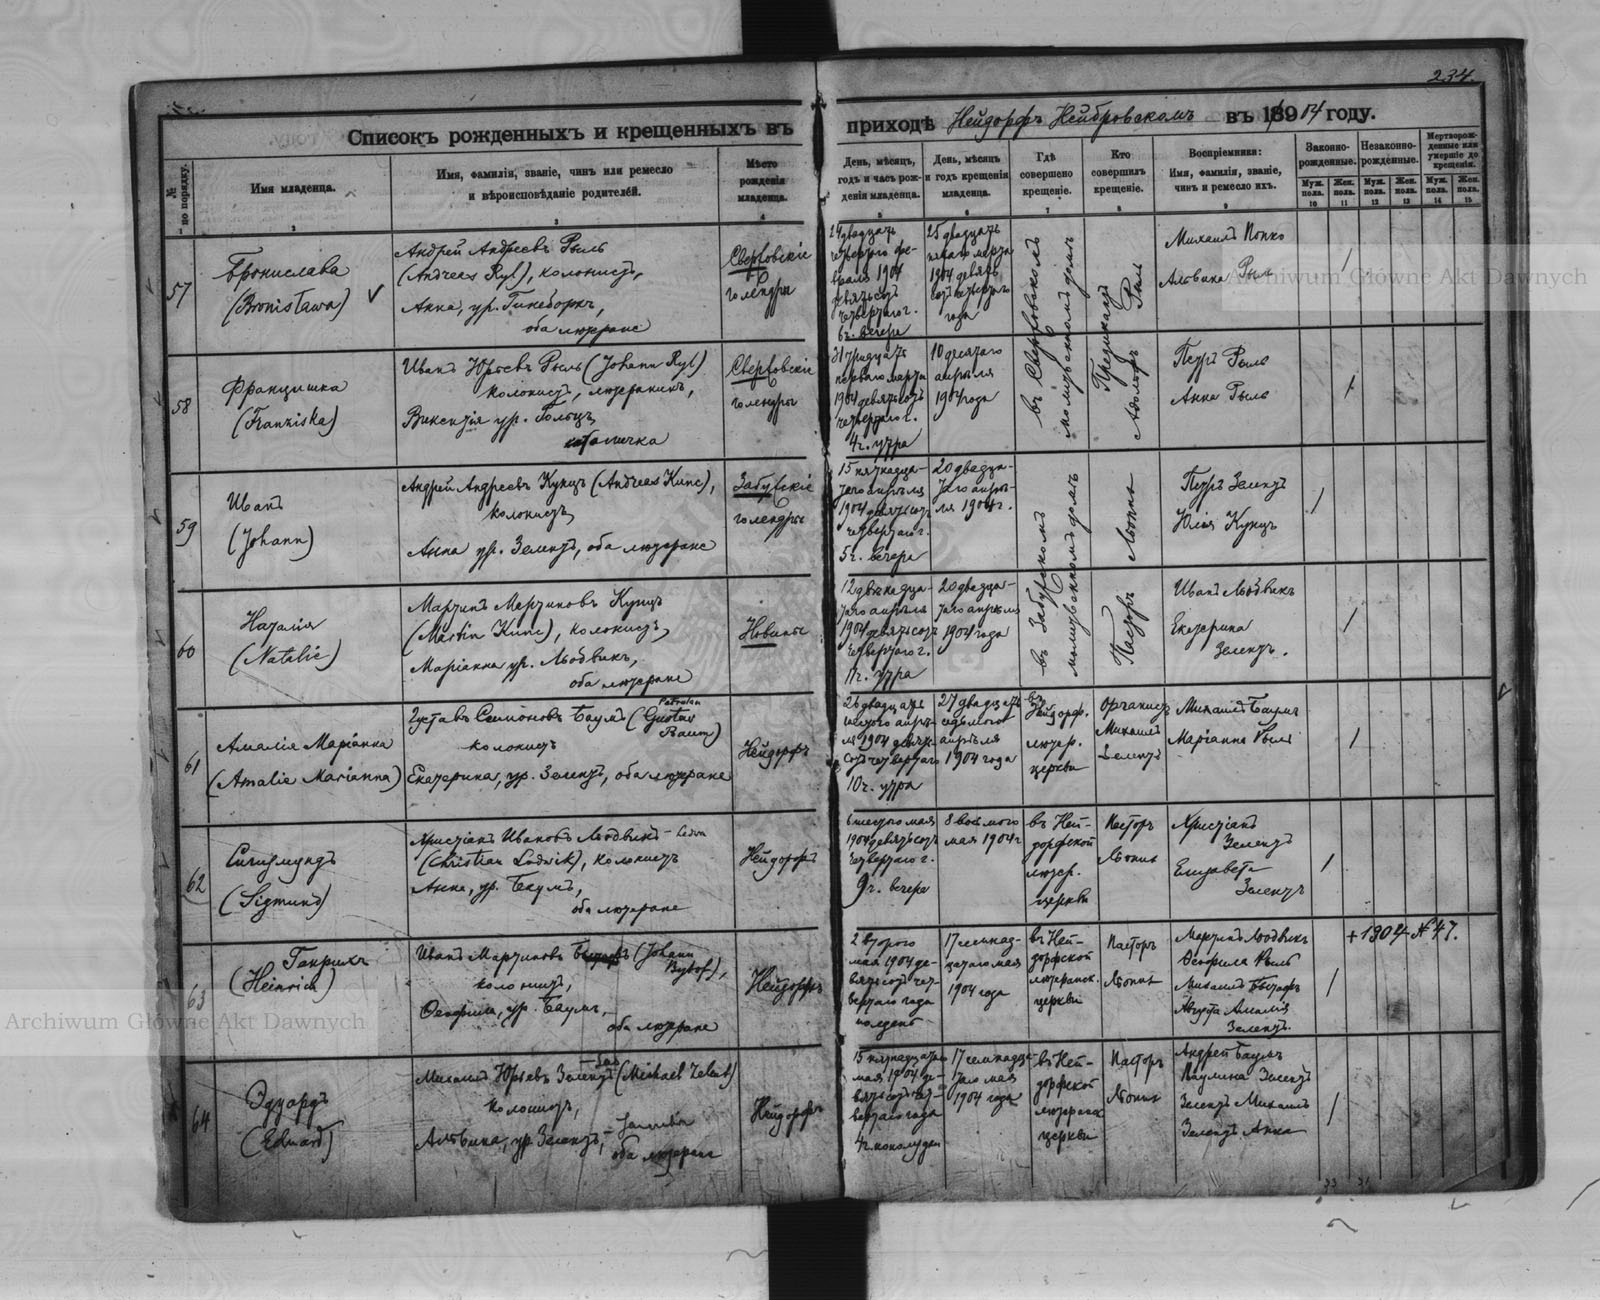 234.
Списокъ рожденныхъ и крещенныхъ въ приходѣ Нейдорфъ Нейбровскомъ въ 1904 году.
№ по порядку.
Имя младенца.
Имя, фамилія, званіе, чинъ или ремесло
и вѣроисповѣданіе родителей.
Мѣсто
рожденія
младенца.
День, мѣсяцъ,
годъ и часъ рож-
денія младенца.
День, мѣсяцъ
и годъ крещенія
младенца.
Гдѣ
совершено
крещеніе.
Кто
совершилъ
крещеніе.
Воспріемники:
Имя, фамилія, званіе,
чинъ и ремесло ихъ.
Законно-
рожденные.
Незаконно-
рожденные.
Мертворож-
денные или
умершіе до
крещенія.
Муж. пола.
Жен. пола.
Муж. пола.
Жен. пола.
Муж. пола.
Жен. пола.
1 2 3 4 5 6 7 8 9 10 11 12 13 14 15
57
Бронислава
(Bronisława)
Андрей Андреевъ Рыль
(Andreas Ryl), колонистъ,
Анна, ур. Гинеборхъ,
оба лютеране
Свержовскіе
голендры
24 двадцать
четвертаго фе-
враля 1904
девятьсотъ
четвертаго г.
6 ч. вечера
25 двадцать
пятаго марта
1904 девять
сотъ четвертаго
года
въ Свержовскомъ
молитвенномъ домѣ
Предикантъ
Адольфъ Рыль
Михаилъ Попко
Альвина Рыль
58
Францишка
(Franziska)
Иванъ Юрьевъ Рыль (Johann Ryl)
колонистъ, лютеранинъ,
Викентія ур. Гольцъ,
католичка
Свержовскіе
голендры
31 тридцать
перваго марта
1904 девятьсотъ
четвертаго г.
4 ч. утра
10 десятаго
апрѣля
1904 года
Петръ Рыль
Анна Рыль
59
Иванъ
(Johann)
Андрей Андреевъ Кунцъ (Andreas Kunc),
колонистъ,
Анна ур. Зелентъ, оба лютеране
Забужскіе
голендры
15 пятнадца-
таго апрѣля
1904 девятьсотъ
четвертаго г.
5 ч. вечера
20 двадца-
таго апрѣ-
ля 1904 г.
въ Забужскомъ
молитвенномъ домѣ
Пасторъ Лоппе
Петръ Зелентъ
Юлія Кунцъ
60
Наталія
(Natalie)
Мартинъ Мартиновъ Кунцъ
(Martin Kunc), колонистъ,
Маріанна ур. Людвикъ,
оба лютеране
Новины
12 двѣнадца-
таго апрѣля
1904 девятьсотъ
четвертаго г.
11 ч. утра
20 двадца-
таго апрѣля
1904 года
Иванъ Людвикъ
Екатерина
Зелентъ.
61
Амалія Маріанна
(Amalie Marianna)
Густавъ Симоновъ Баумъ (Gustav
Baum)
колонистъ
Екатерина, ур. Зелентъ, оба лютеране
Нейдорфъ
26 двадцать
шестого апрѣ-
ля 1904 девять-
сотъ четвертаго
10 ч. утра
27 двадцать
седьмого
апрѣля
1904 года
въ
Нейдорф.
лютер.
церкви
Органистъ
Михаилъ
Зелентъ
Михаилъ Баумъ
Маріанна Рыль
62
Сигизмундъ
(Sigmund)
Христіанъ Ивановъ Людвикъ
(Christian Ludwik), колонистъ
Анна, ур. Баумъ,
оба лютеране
Нейдорфъ
6 шестого мая
1904 девятьсотъ
четвертаго г.
9 ч. вечера
8 восьмого
мая 1904 г.
въ Ней-
дорфской
лютер.
церкви
Пасторъ
Лоппе
Христіанъ
Зелентъ
Елизавета
Зелентъ
63
Генрихъ
(Heinrich)
Иванъ Мартиновъ Бытофъ (Johann
Bytof),
колонистъ,
Феофила, ур. Баумъ,
оба лютеране
Нейдорфъ
2 второго
мая 1904 де-
вятьсотъ чет-
вертаго года
полдень
17 семнад-
цатаго мая
1904 года
въ Ней-
дорфской
лютеранск.
церкви
Пасторъ
Лоппе
Мартинъ Людвикъ
Феофила Рыль
Михаилъ Бытофъ
Августа Амалія
Зелентъ.
+ 1904 № 47.
64
Эдуардъ
(Eduard)
Михаилъ Юрьевъ Зелентъ (Michael Zelent)
колонистъ,
Альвина, ур. Зелентъ,
оба лютеране
Нейдорфъ
15 пятнадцатаго
мая 1904 де-
вятьсотъ чет-
вертаго года
4 ч. пополудни
17 семнадца-
таго мая
1904 года
въ Ней-
дорфской
лютеранск.
церкви
Пасторъ
Лоппе
Андрей Баумъ
Паулина Зелентъ
Зелентъ Михаилъ
Зелентъ Анна
33 31
Archiwum Główne Akt Dawnych
Archiwum Główne Akt Dawnych